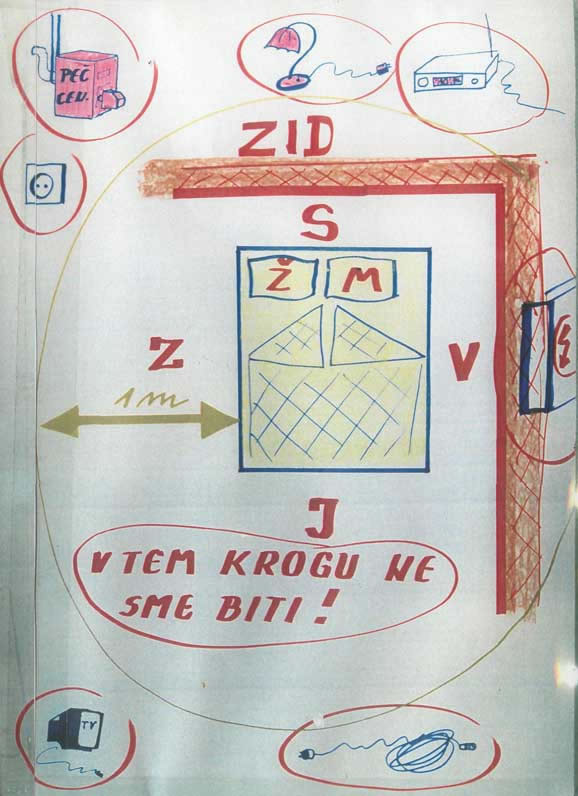 PEČ
CEN.
ZID
S
Ž M
Z
V
1m
J
V TEM KROGU NE
SME BITI!
TV